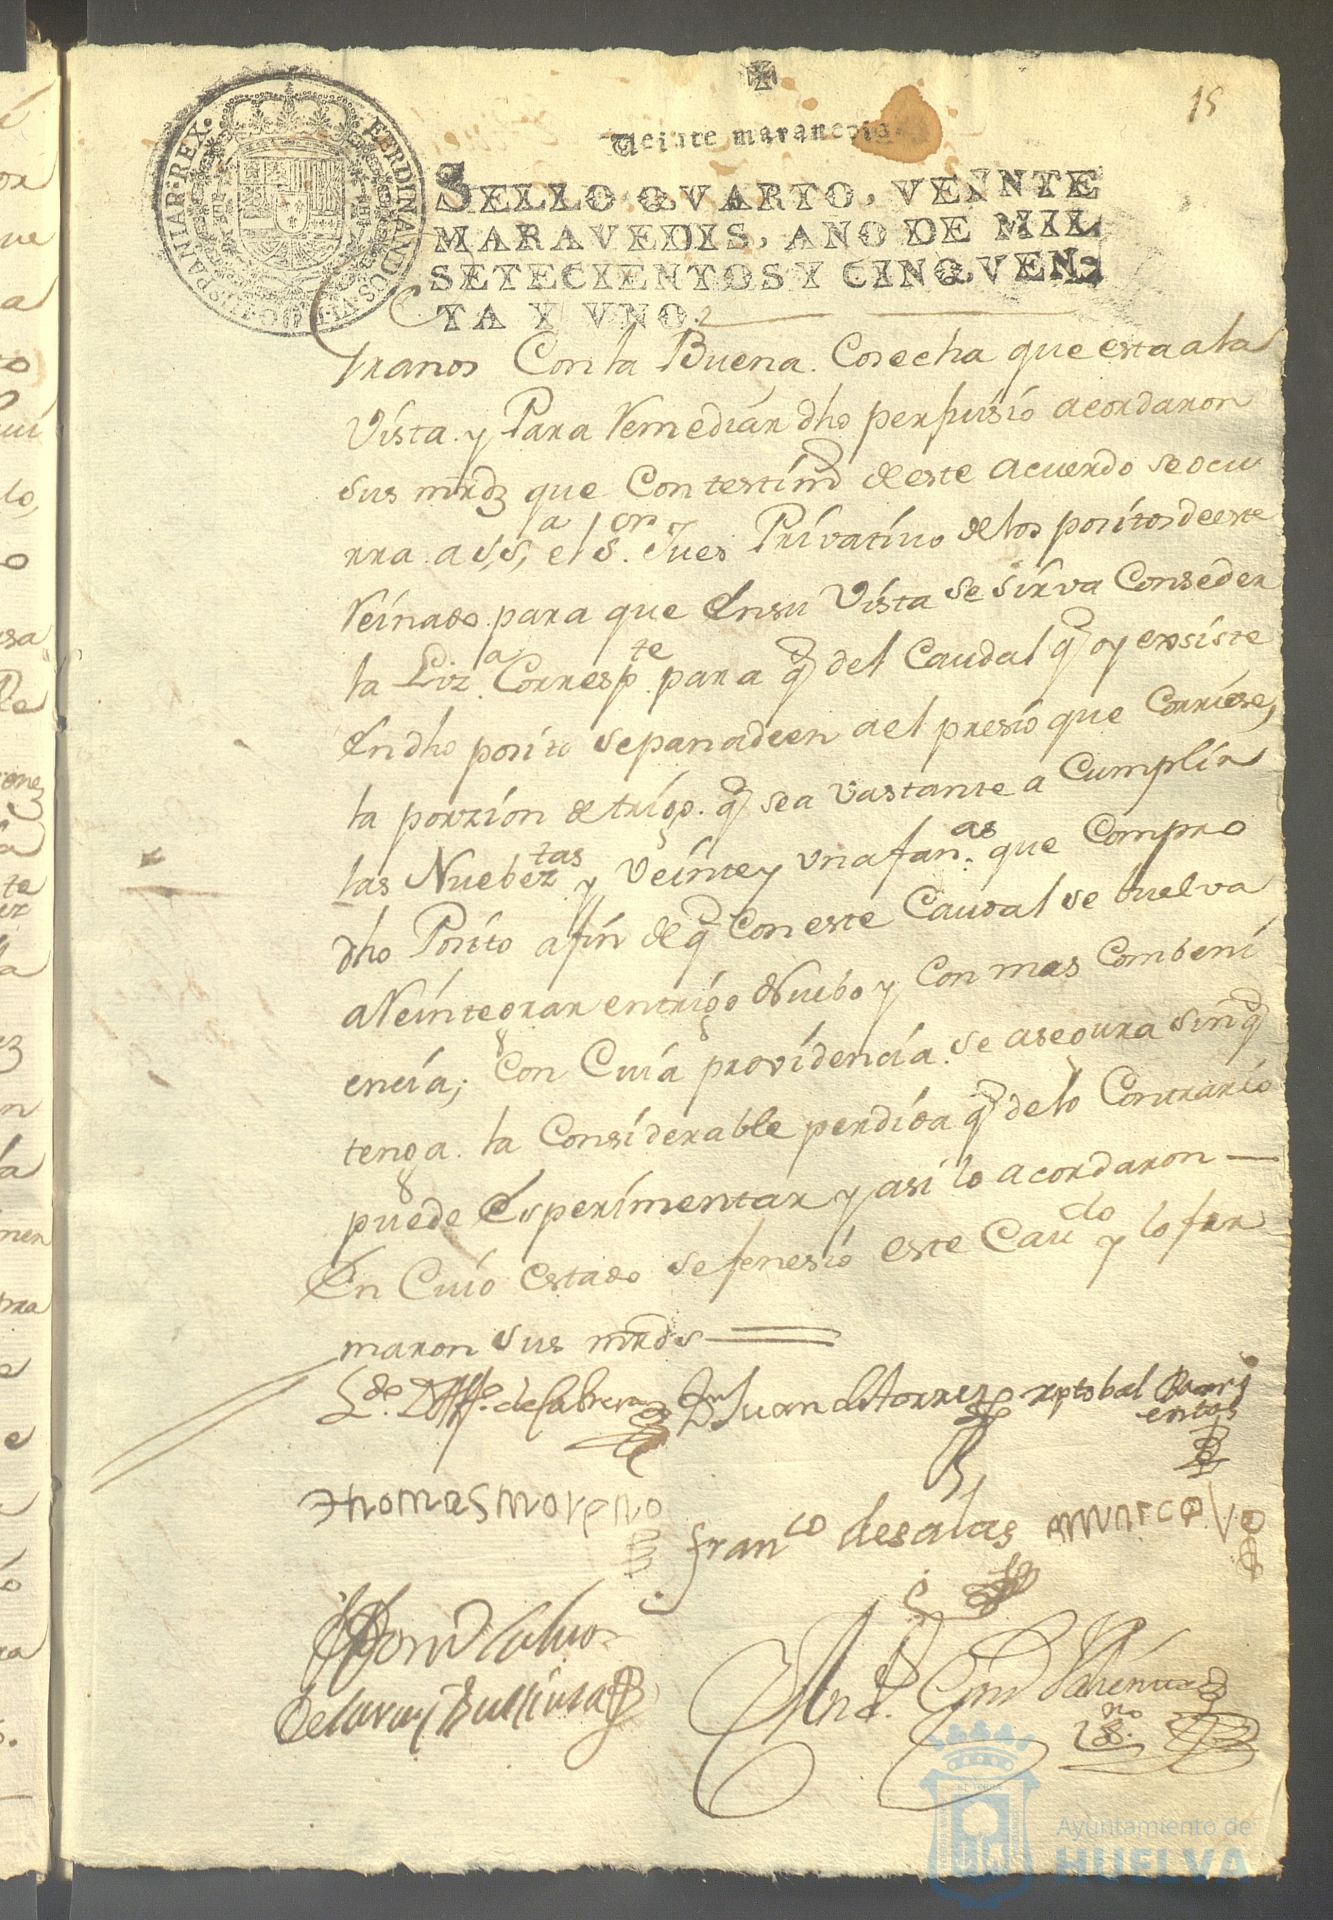 15
Veinte maravedis
SELLO QVARTO, VEINTE
MARAVEDIS, AÑO DE MIL
SETECIENTOS Y CINQVEN-
TA Y VNO.
FERDINANDUS·VI·D·G·HISPANIAR·REX·
tranos Con la Buena Cosecha que esta a la
Vista y Para Remediar dho perjuisio acordaron
sus mrds que Con testimo de este acuerdo se ocu
rra a S,S,a el Sor Jues Privativo de los positos de este
Reinado para que En su Vista se sirva Conseder
la Liza Correspte para q del Caudal q oy exsiste
En dho posito se panadeen a el presio que Corriese,
la porzion de trigo q sea vastante a Cumplir
las Nuebeztas y Veinte y una fanas que Compro
dho Posito a fin de q Con este Caudal se buelva
a Reintegrar en trigo Nuebo y Con mas Combeni
encia; Con Cuia providencia se asegura sin q
tenga la Considerable perdida q de lo Contrario
puede Esperimentar y asi lo acordaron —
En Cuio estado se fenesio este Caudo y lo fir
maron sus mrds
Ldo Dn Alfo de Cabrera Dn Juan de torres xptobal Barri
entos
thomas moreno
Franco de salas marco
Ayuntamiento de
HUELVA